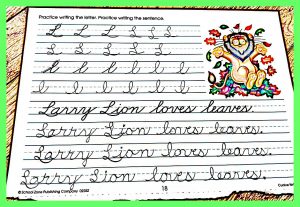 Practice writing the letter. Practice writing the sentence.
L L L L L L
L L L L L L
l l l l l l l
l l l l l l l
Larry Lion loves leaves
Larry Lion loves leaves.
Larry Lion loves leaves.
Larry Lion loves leaves.
© School Zone Publishing Company
18